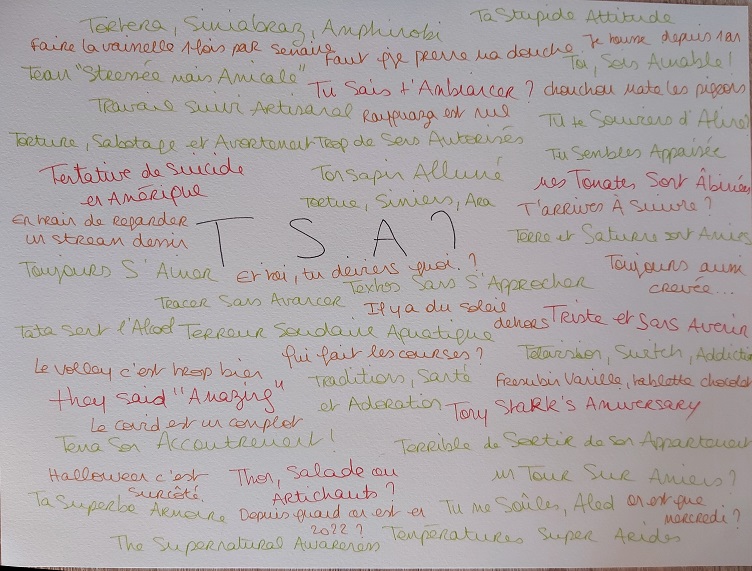 Tortera, Siniabraz, Amphinobi
Ta Stupide Attitude
Faire la vaisselle 1 fois par semaine
Faut que je prenne ma douche
Je housse depuis 1 an
Team "Stressée mais Amicale"
Toi, Sois Aimable!
Tu Sais t'Ambiancer ?
chouchou mate les pigeons
Travail Suivi Artisanal
Rayquaza est nul
Tu te Souviens d'Aline?
Torture, Sabotage et Avortement
Trop de Sens Autorisés
Tu Sembles Apaisée
Tentative de Suicide
en Amérique
Ton Sapin Allumé
mes Tomates Sont Âbimées
Tortue, Siniers, Ara
T'arrives À Suivre ?
En train de regarder
un stream demin
T S A ?
Terre et Saturne sont Amies
Toujours S'Aimer
Et toi, tu deviens quoi ?
Toujours aussi
crevée...
Textos Sans S'Approcher
Tracer Sans Avancer
Il y a du soleil
dehors
Triste et Sans Avenir
Tata Sent l'Alcool
Terreur Soudaine Aquatique
Le volley c'est trop bien
Qui fait les courses ?
Télévision, Switch, Addiction
Traditions, Santé
et Adoration
Fresubin Vanille, tablette chocolat
they said "Amazing"
Tony Stark's Anniversary
Le covid est un complot
Tena Son Accoutrement !
Terrible de Sortir de son Appartement
Halloween c'est
surcôté
Thon, Salade ou
Artichauts ?
un Tour Sur Amiens ?
Ta Superbe Armoire
Depuis quand on est en
2022 ?
Tu me Soûles, Aled
on est que
mercredi ?
The Supernatural Awareness
Températures Super Arides